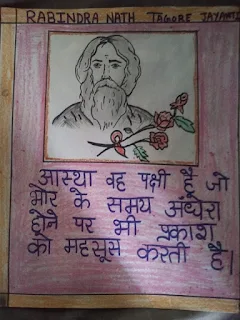 RABINDRA NATH TAGORE JAYANTI
आस्था वह पक्षी है जो
भोर के समय अंधेरा
होने पर भी प्रकाश
को महसूस करती है।